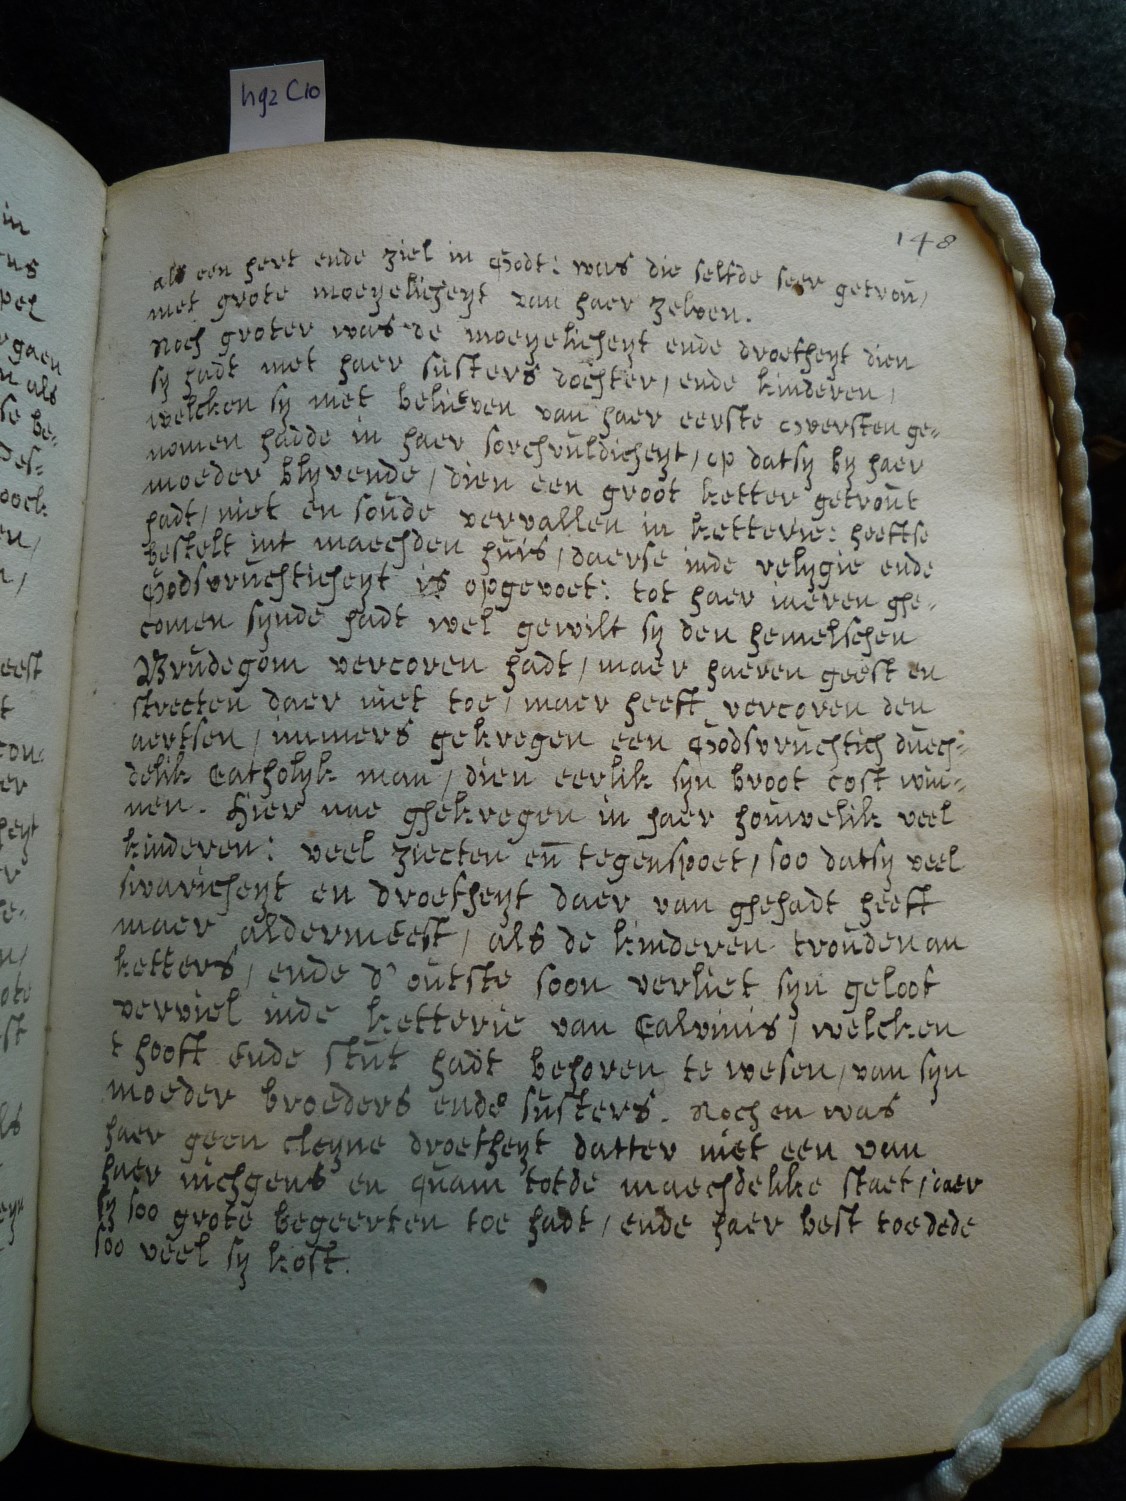 hg2 C10
148
als een hert ende ziel in Godt: was die selfde seer getrou,
met grote moeyelicheyt van haer zelven.
Noch groter was de moeyelicheyt ende droefheyt dien
sy hadt met haer susters dochter, ende kinderen,
welcken sy met believen van haer eerste oversten ge-
nomen hadde in haer sorchvuldicheyt, op datsy by haer
moeder blyvende, dien een groot ketter getrout
hadt, niet en soude vervallen in ketterie: heeftse
bestelt int maechden huis, daerse inde relygie ende
Godsvruchticheyt is opgevoet: tot haer iaeren ghe-
comen synde hadt wel gewilt sy den hemelschen
Brudegom vercoren hadt, maer haeren geest en
strecten daer niet toe, maer heeft vercoren den
aertsen, immers gekregen een Godsvruchtich duech-
delik Catholyk man, dien eerlik syn broot cost win-
nen. Hier nae ghekregen in haer houwelik veel
kinderen: veel ziecten en tegenspoet, soo datsy veel
swaricheyt en droefheyt daer van ghehadt heeft
maer aldermeest, als de kinderen trouden an
ketters, ende d'outste soon verliet syn geloof
verviel inde ketterie van Calvinis, welcken
t hooft ende stut hadt behoren te wesen, van syn
moeder broeders ende susters. Noch en was
haer geen cleyne droefheyt datter niet een van
haer nichgens en quam totde maechdelike staet, daer
sy soo grote begeerten toe hadt, ende haer best toe dede
soo veel sy kost.
in
pel
gaen
n als
se be-
des-
oock
en,
eest
t
er
heyt
n,
ote
st